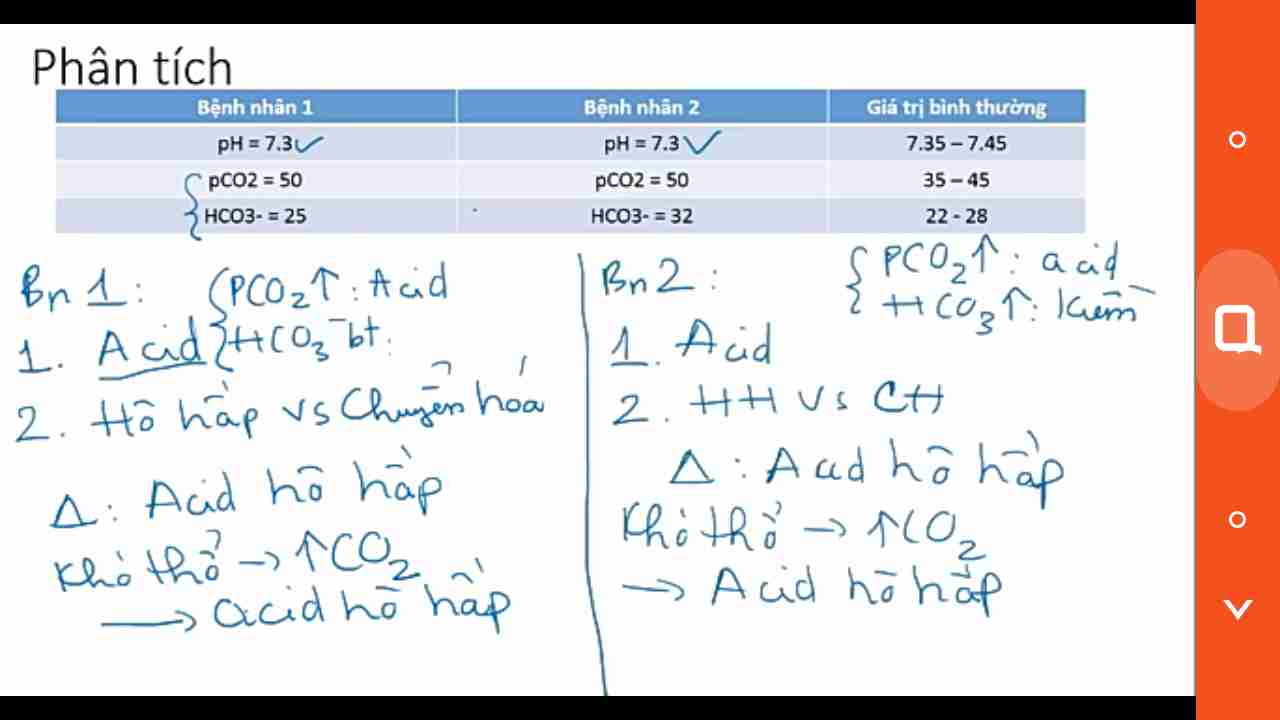 Phân tích
Bệnh nhân 1 Bệnh nhân 2 Giá trị bình thường
pH = 7.3✓ pH = 7.3✓ 7.35 – 7.45
pCO2 = 50 pCO2 = 50 35 – 45
HCO3- = 25 HCO3- = 32 22 - 28
Bn 1: PCO₂↑: Acid
HCO₃⁻ bt.
1. Acid
2. Hô hấp vs Chuyển hóa
Δ: Acid hô hấp
Khó thở → ↑CO₂
→ acid hô hấp
Bn 2: PCO₂↑: acid
HCO₃↑: Kiềm
1. Acid
2. HH vs CH
Δ: Acid hô hấp
Khó thở → ↑CO₂
→ Acid hô hấp